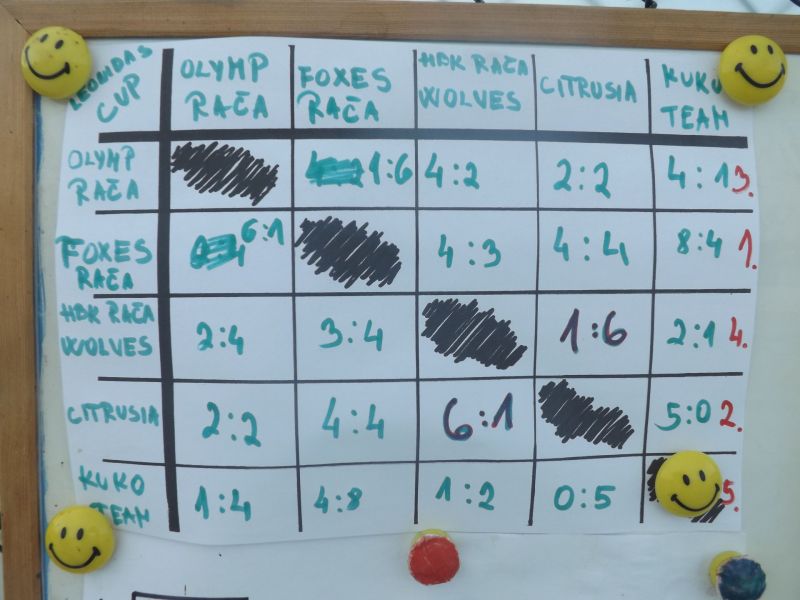 LEONIDAS CUP
OLYMP RAČA
FOXES RAČA
HBK RAČA WOLVES
CITRUSIA
KUKO TEAM
OLYMP RAČA
1:6 4:2 2:2 4:1 3.
FOXES RAČA
6:1 4:3 4:4 8:4 1.
HBK RAČA WOLVES
2:4 3:4 1:6 2:1 4.
CITRUSIA
2:2 4:4 6:1 5:0 2.
KUKO TEAM
1:4 4:8 1:2 0:5 5.